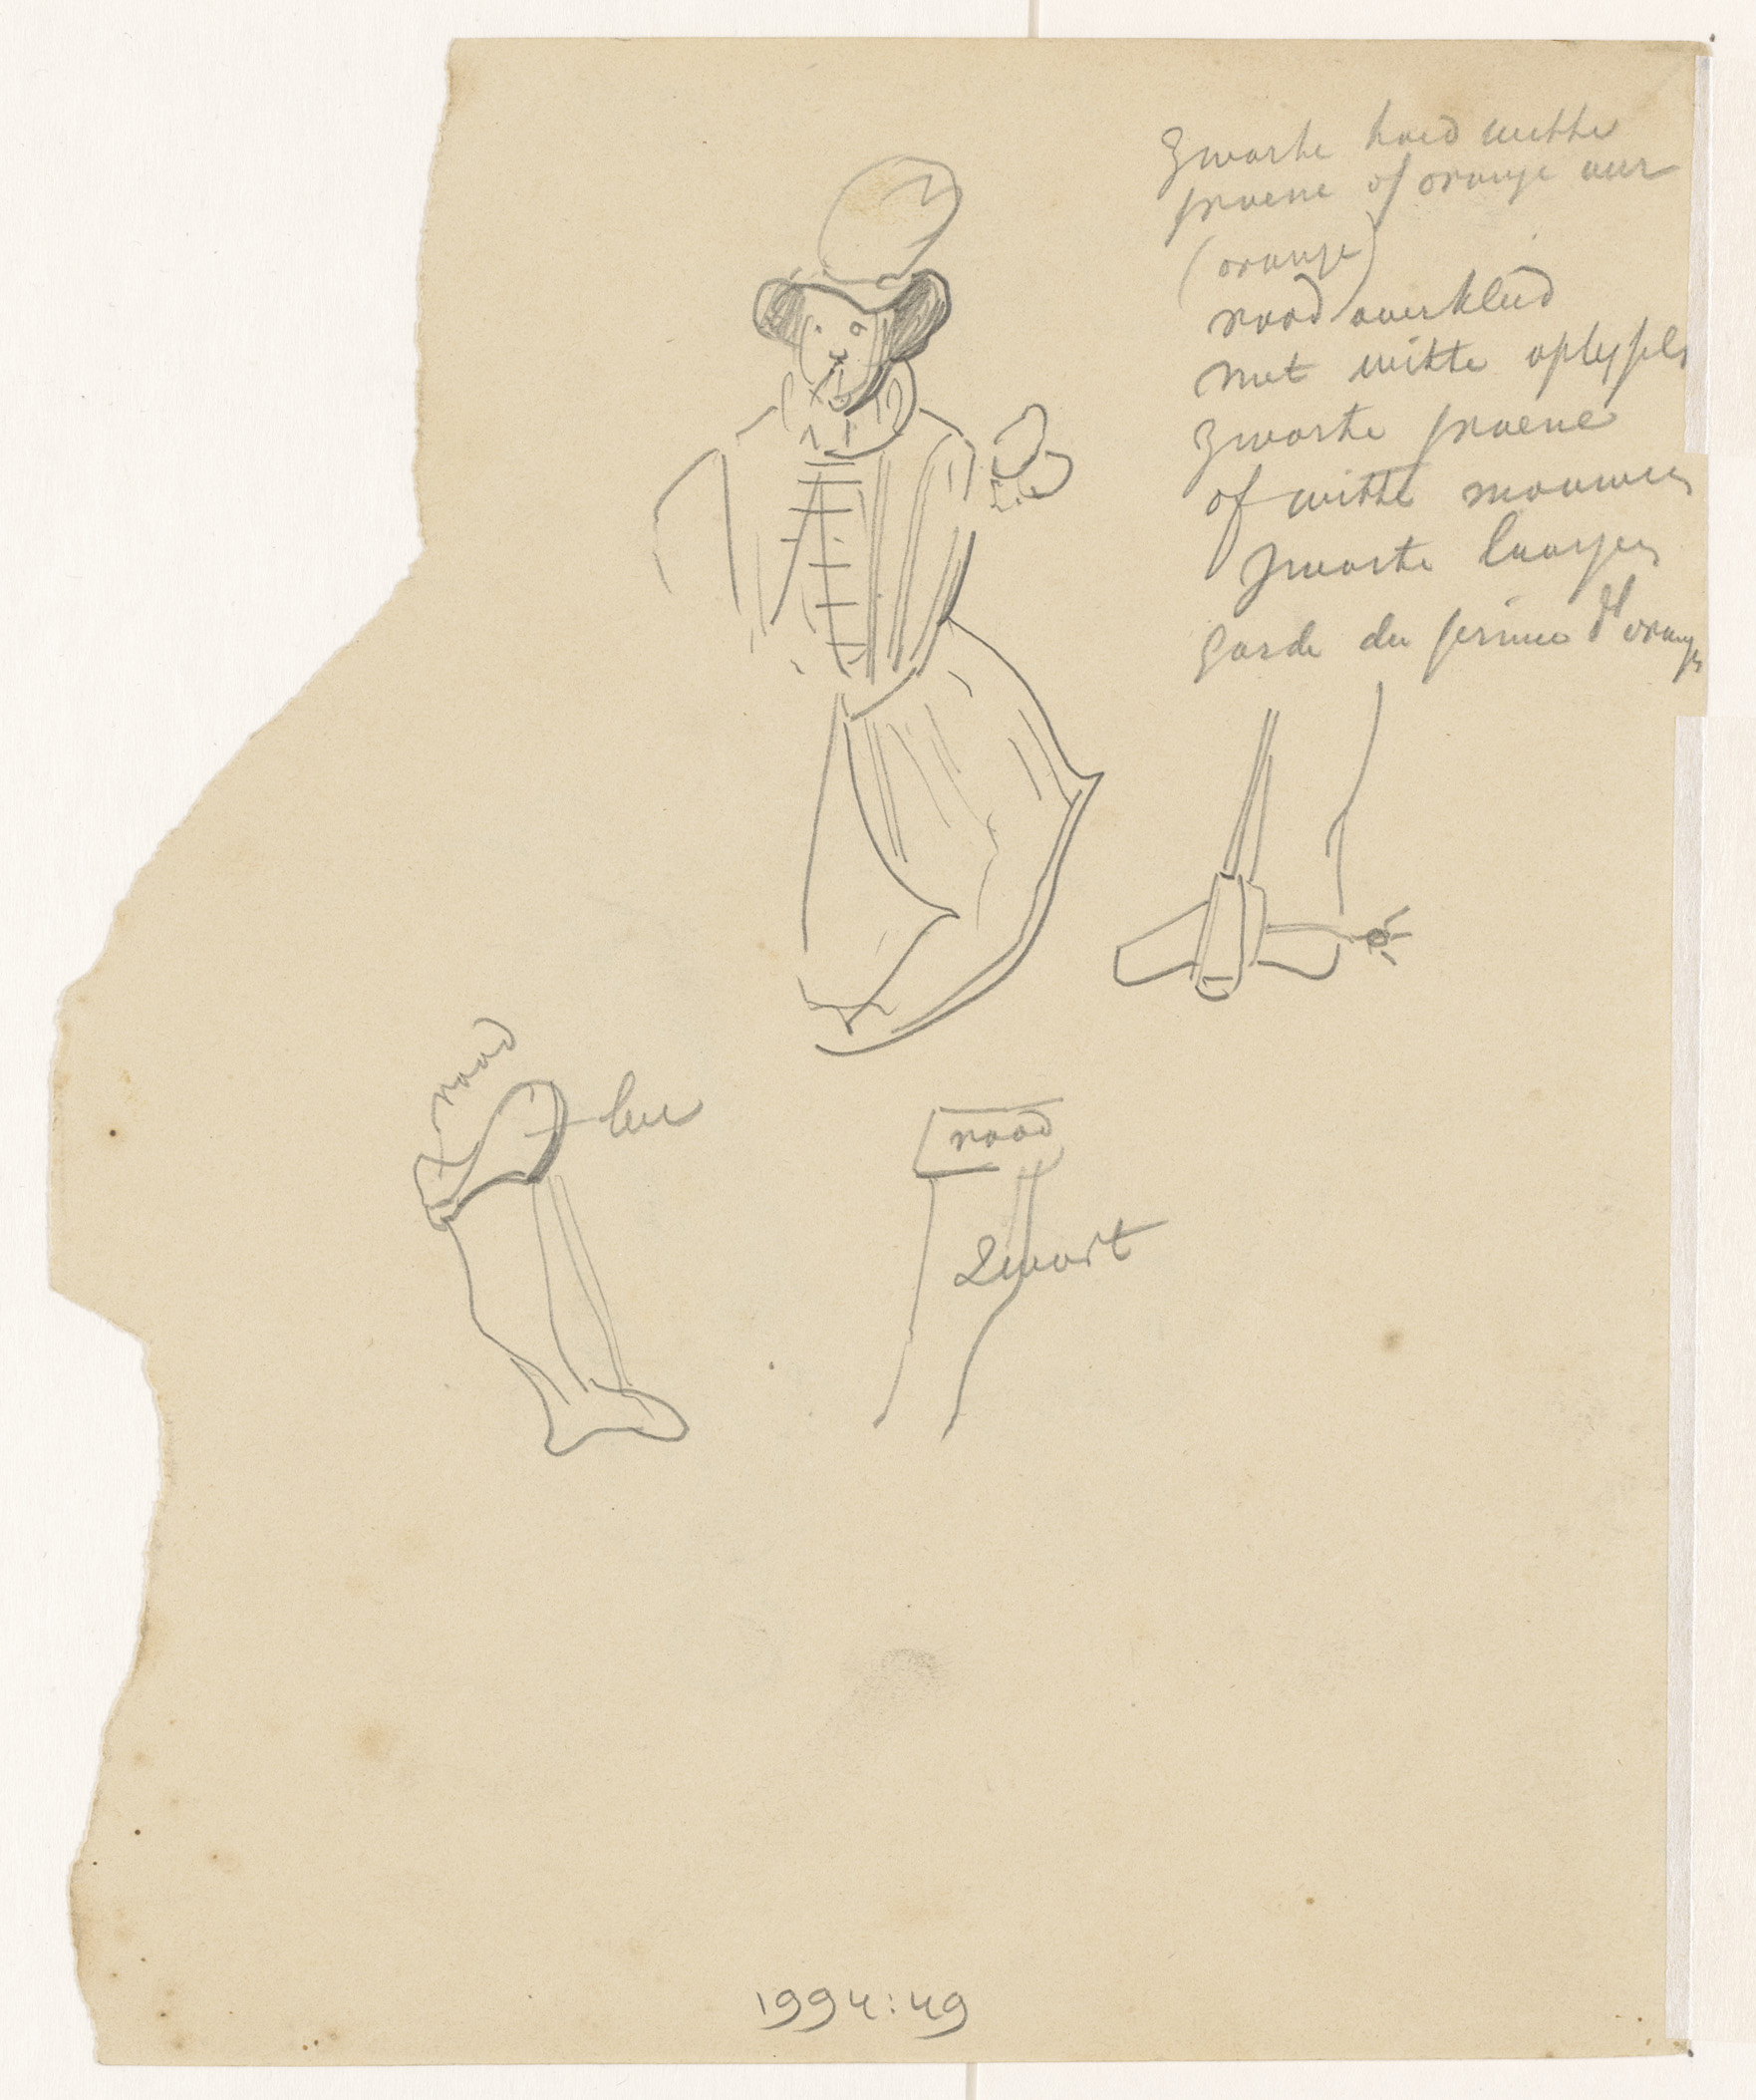 zwarte hoed witte
pruene of oranje veer
(oranje)
rood overkleed
met witte oplysels
zwarte pruene
of witte mouwen
zwarte laarzen
garde du prince d'orange
rood
leer
rood
Zwart
1994:49